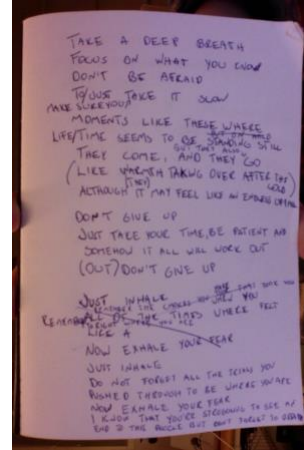 TAKE A DEEP BREATH
FOCUS ON WHAT YOU KNOW
DON'T BE AFRAID
TO JUST TAKE IT SLOW
MAKE SURE YOU
MOMENTS LIKE THESE WHERE
LIFE/TIME SEEMS TO BE STANDING STILL
THEY COME, AND THEY GO
(LIKE WARMTH TAKING OVER AFTER THE COLD)
ALTHOUGH IT MAY FEEL LIKE AN
DON'T GIVE UP
JUST TAKE YOUR TIME, BE PATIENT AND
SOMEHOW IT ALL WILL WORK OUT
(OUT) DON'T GIVE UP
JUST INHALE
REMEMBER ALL OF THE TIMES WHERE YOU FELT
LIKE A
NOW EXHALE YOUR FEAR
JUST INHALE
DO NOT FORGET ALL THE THINGS YOU
PUSHED THROUGH TO BE WHERE YOU ARE
NOW EXHALE YOUR FEAR
I KNOW THAT YOU'RE STRUGGLING TO SEE AN
END TO THIS BUT DON'T FORGET TO BREATHE